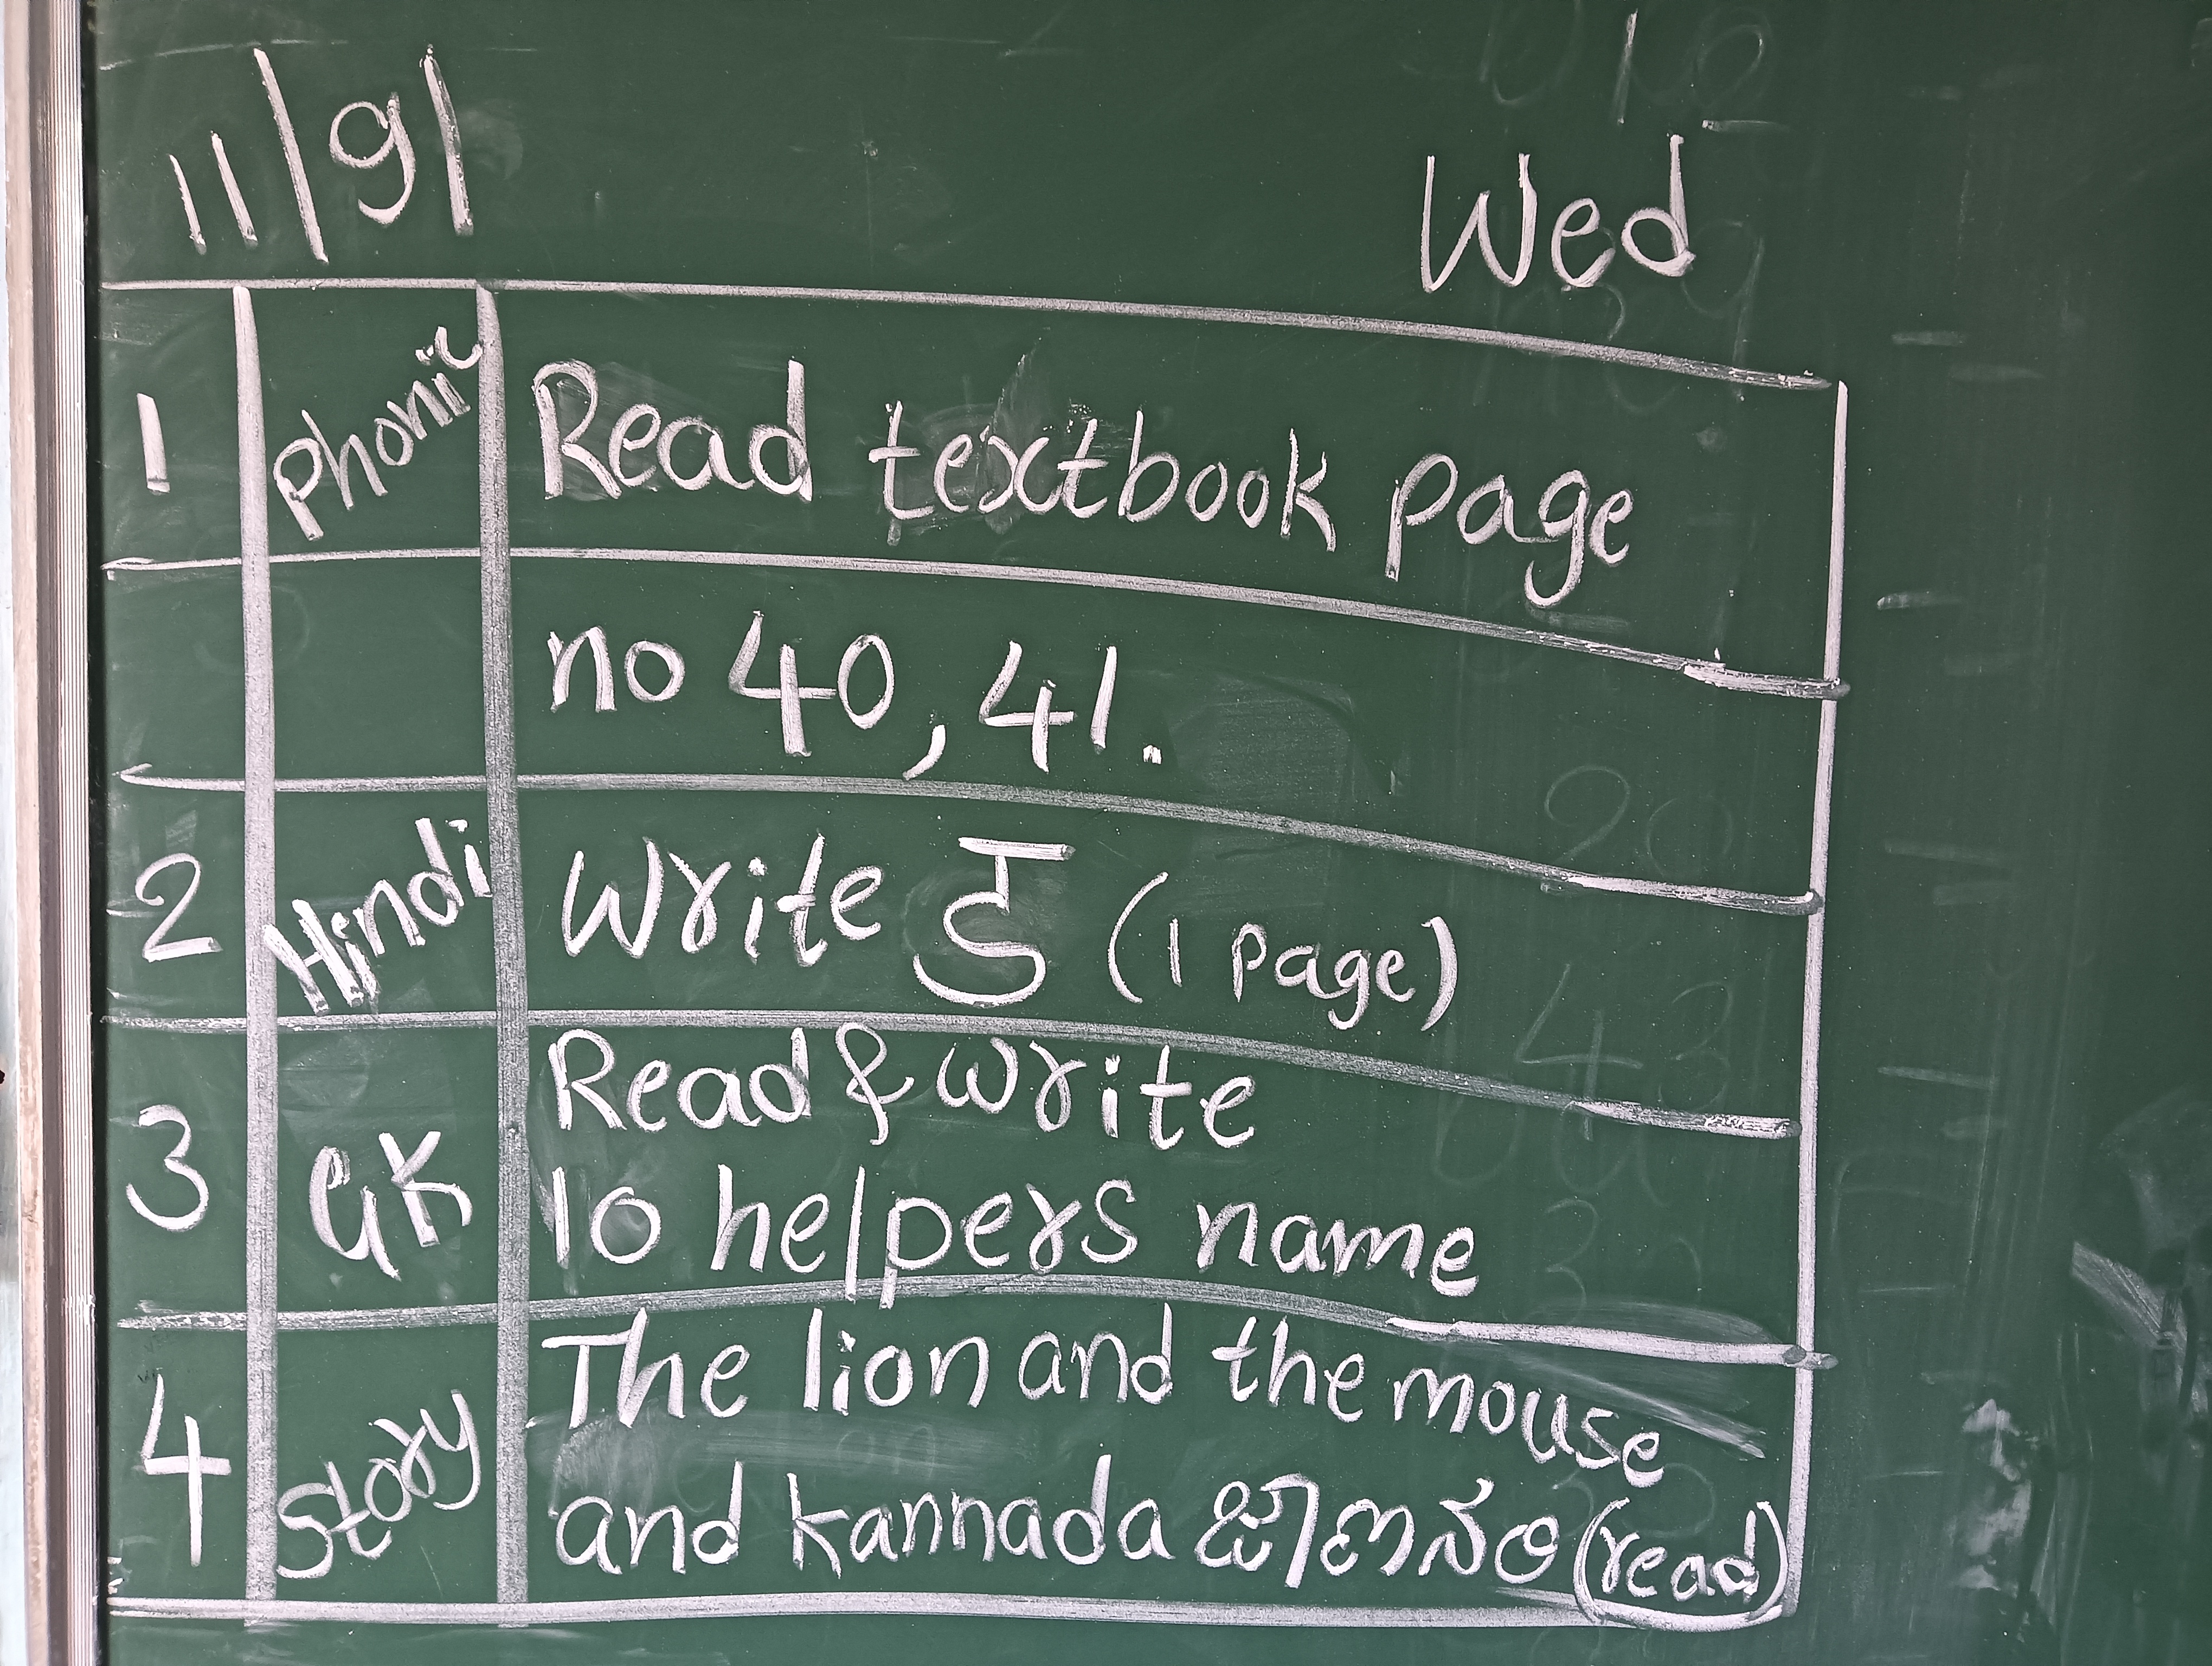 11/9/
Wed
1 Phonic Read textbook page
no 40, 41.
2 Hindi Write ड (1 page)
3 GK Read & write
10 helpers name
4 Story The lion and the mouse
and kannada ಜಾಣನರಿ (read)